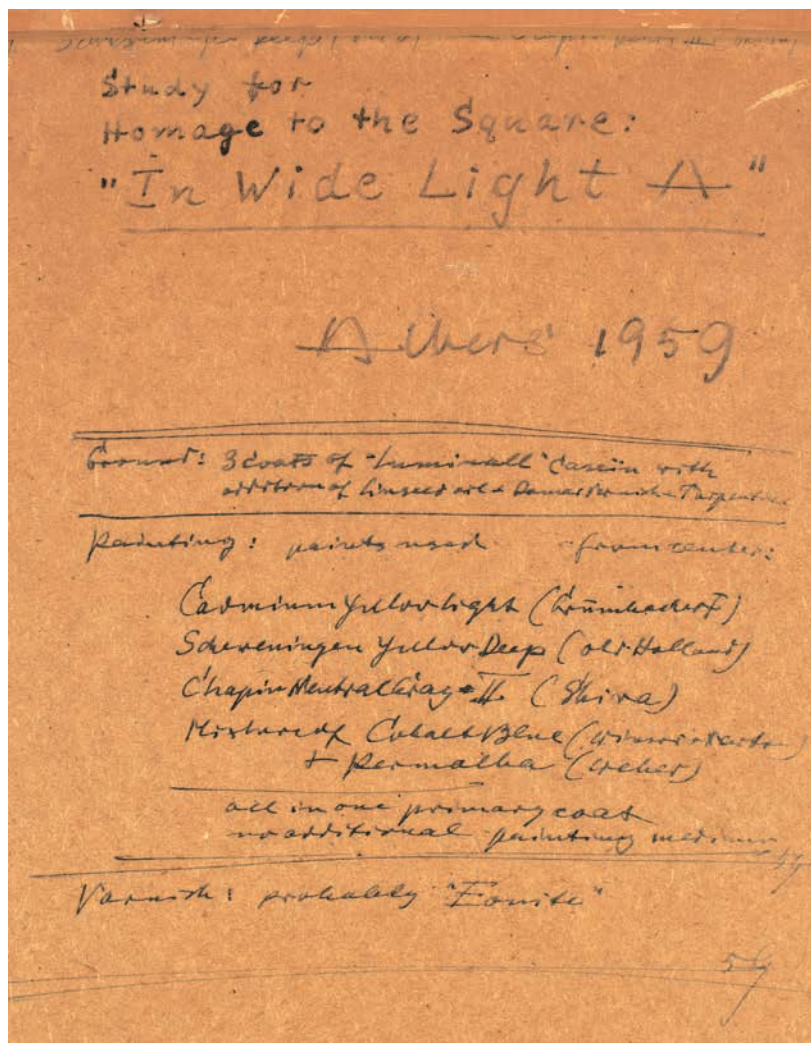 Study for
Homage to the Square:
"In Wide Light A"
Albers 1959
Ground: 3 coats of "Luminall" Casein with
addition of linseed oil + Damar Varnish + Turpentine
Painting: paints used – from center:
Cadmium Yellow Light (Grumbacher F)
Scheveningen Yellow Deep (Old Holland)
Chapin Neutral Gray - II (Shiva)
Mixture of Cobalt Blue (Winsor + Newton)
+ Permalba (Weber)
all in one primary coat
no additional painting medium
59
Varnish: probably
59